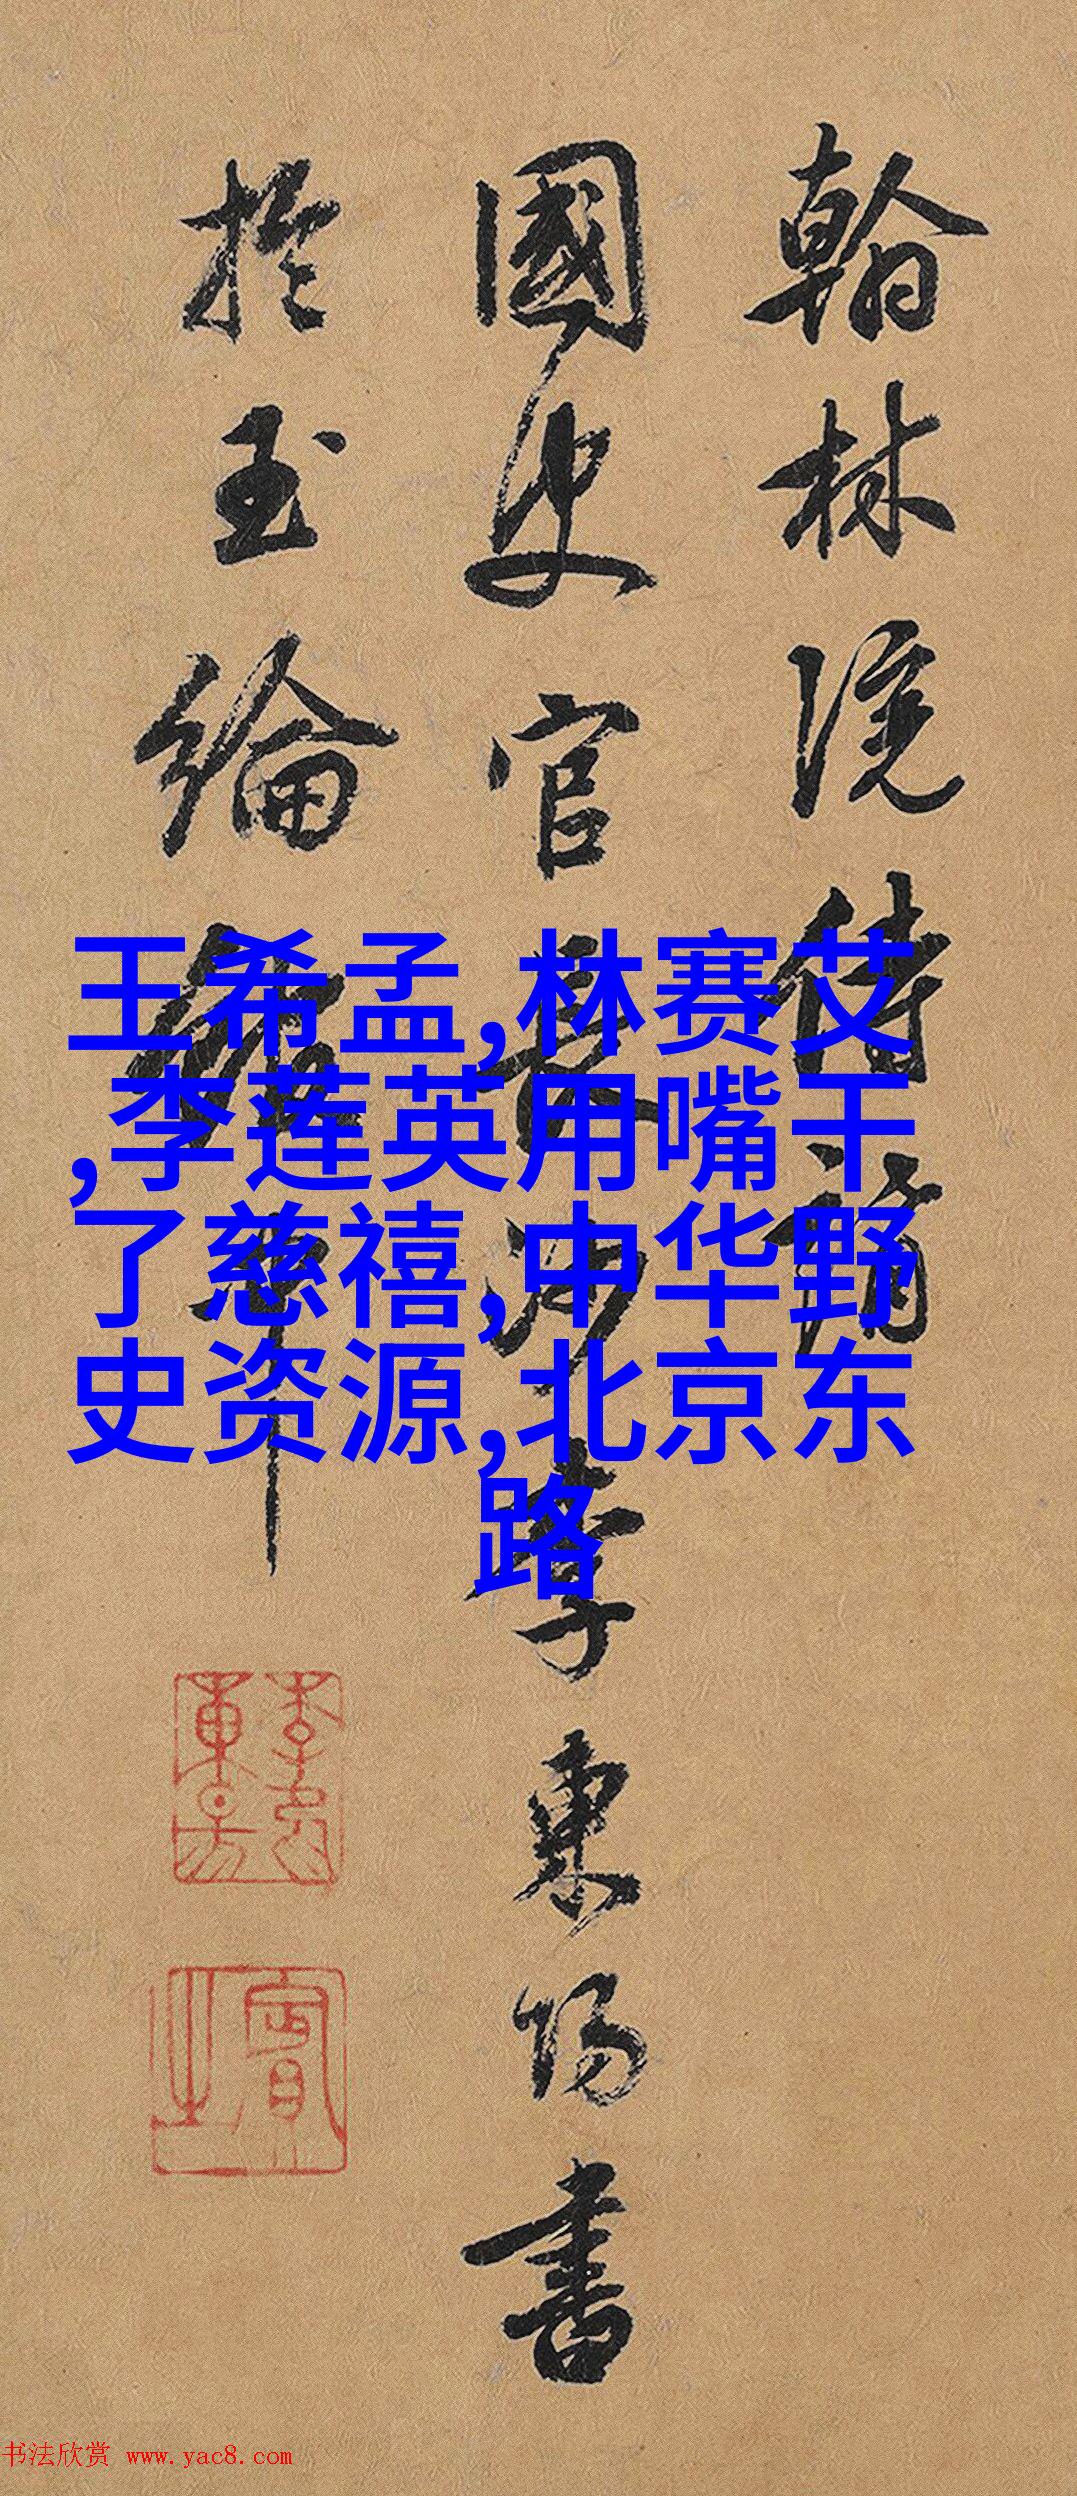 翰林院侍講
國史官長沙李東陽書
於玉綸
王希孟,林赛艾
,李莲英用嘴干
了慈禧,中华野
史资源,北京东
路
书法欣赏 www.yac8.com